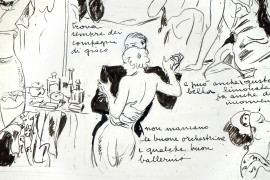 trova
sempre dei
compagni
di gioco
e può anche gustare
bella limonata
non mancano
le buone orchestrine
e qualche buon
ballerino